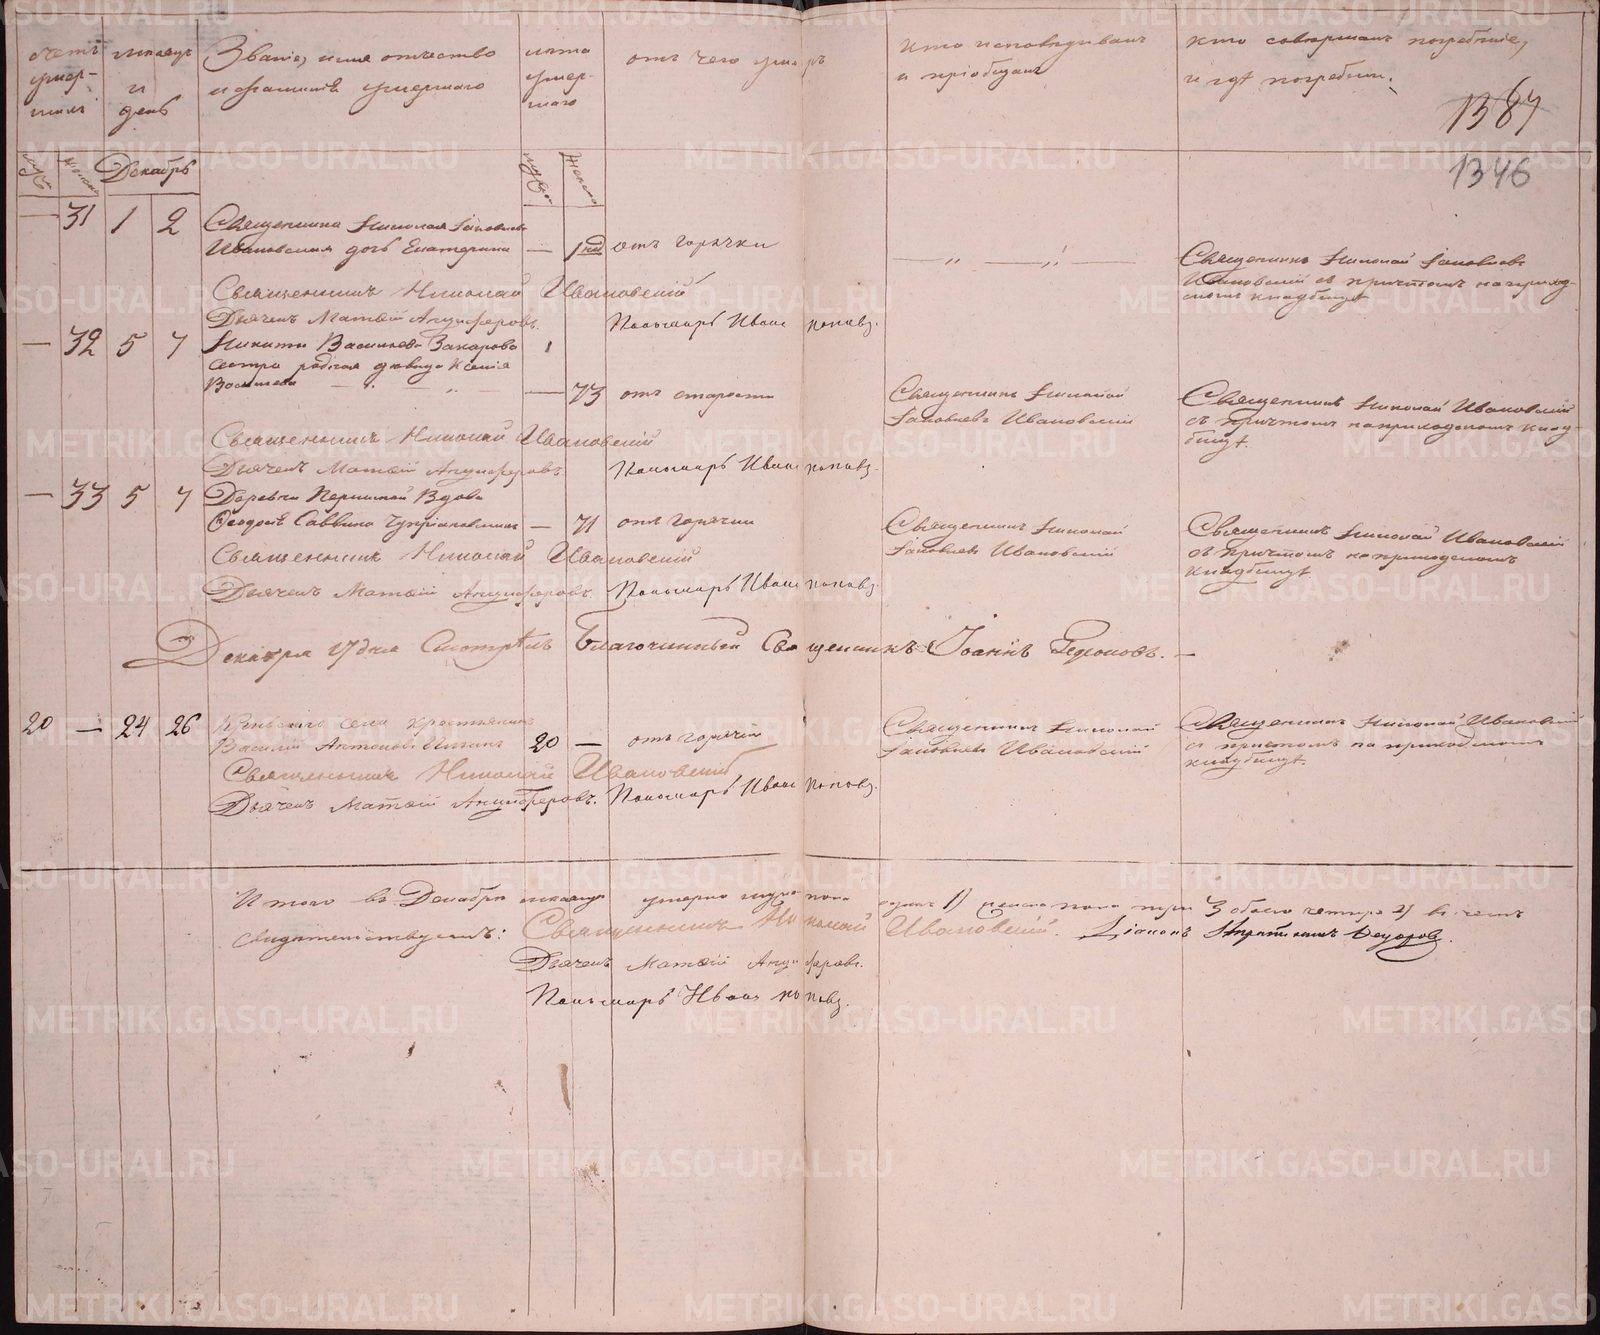 счетъ умер-шихъ
мѣсяцъ и день
Званіе, имя отчество и фамилія умершаго
лѣта умер-шаго
отъ чего умеръ
Кто исповѣдывалъ и пріобщалъ
Кто совершалъ погребеніе, и гдѣ погребены.
1387
1346
Декабрь
— 31 1 2 Священника Николая Іаковлева
Ивановскаго дочь Екатерина — 1 нед отъ горячки — „ — „ — Священникъ Николай Іаковлевъ
Ивановскій съ причтомъ на приход-
скомъ кладбищѣ
Священникъ Николай Ивановскій
Дьячекъ Матѳій Анциферовъ. Пономарь Иванъ Поповъ.
— 32 5 7 Никиты Васильева Захарова
сестра родная дѣвица Ксенія
Васильева — „ — „ — 73 отъ старости Священникъ Николай
Іаковлевъ Ивановскій Священникъ Николай Ивановскій
съ причтомъ на приходскомъ клад-
бищѣ.
Священникъ Николай Ивановскій
Дьячекъ Матѳій Анциферовъ. Пономарь Иванъ Поповъ.
— 33 5 7 Деревни Вдова
Ѳеодосія Саввина — 71 отъ горячки Священникъ Николай
Іаковлевъ Ивановскій Священникъ Николай Ивановскій
съ причтомъ на приходскомъ
кладбищѣ.
Священникъ Николай Ивановскій
Дьячекъ Матѳій Анциферовъ. Пономарь Иванъ Поповъ.
Декабря 17 дня Смотрѣлъ Благочинный Священникъ Іоаннъ
20 — 24 26 села крестьянинъ
Василій Антоновъ 20 — отъ горячки Священникъ Николай
Іаковлевъ Ивановскій Священникъ Николай Ивановскій
съ причтомъ на приходскомъ
кладбищѣ.
Священникъ Николай Ивановскій
Дьячекъ Матѳій Анциферовъ. Пономарь Иванъ Поповъ.
Итого въ Декабрѣ мѣсяцѣ умерло муж пола одинъ 1) женска пола три 3 обоего четыре 4) въ чемъ
свидѣтельствуемъ: Священникъ Николай Ивановскій. Діаконъ Ѳедоровъ.
Дьячекъ Матѳій Анциферовъ.
Пономарь Иванъ Поповъ.
METRIKI.GASO-URAL.RU